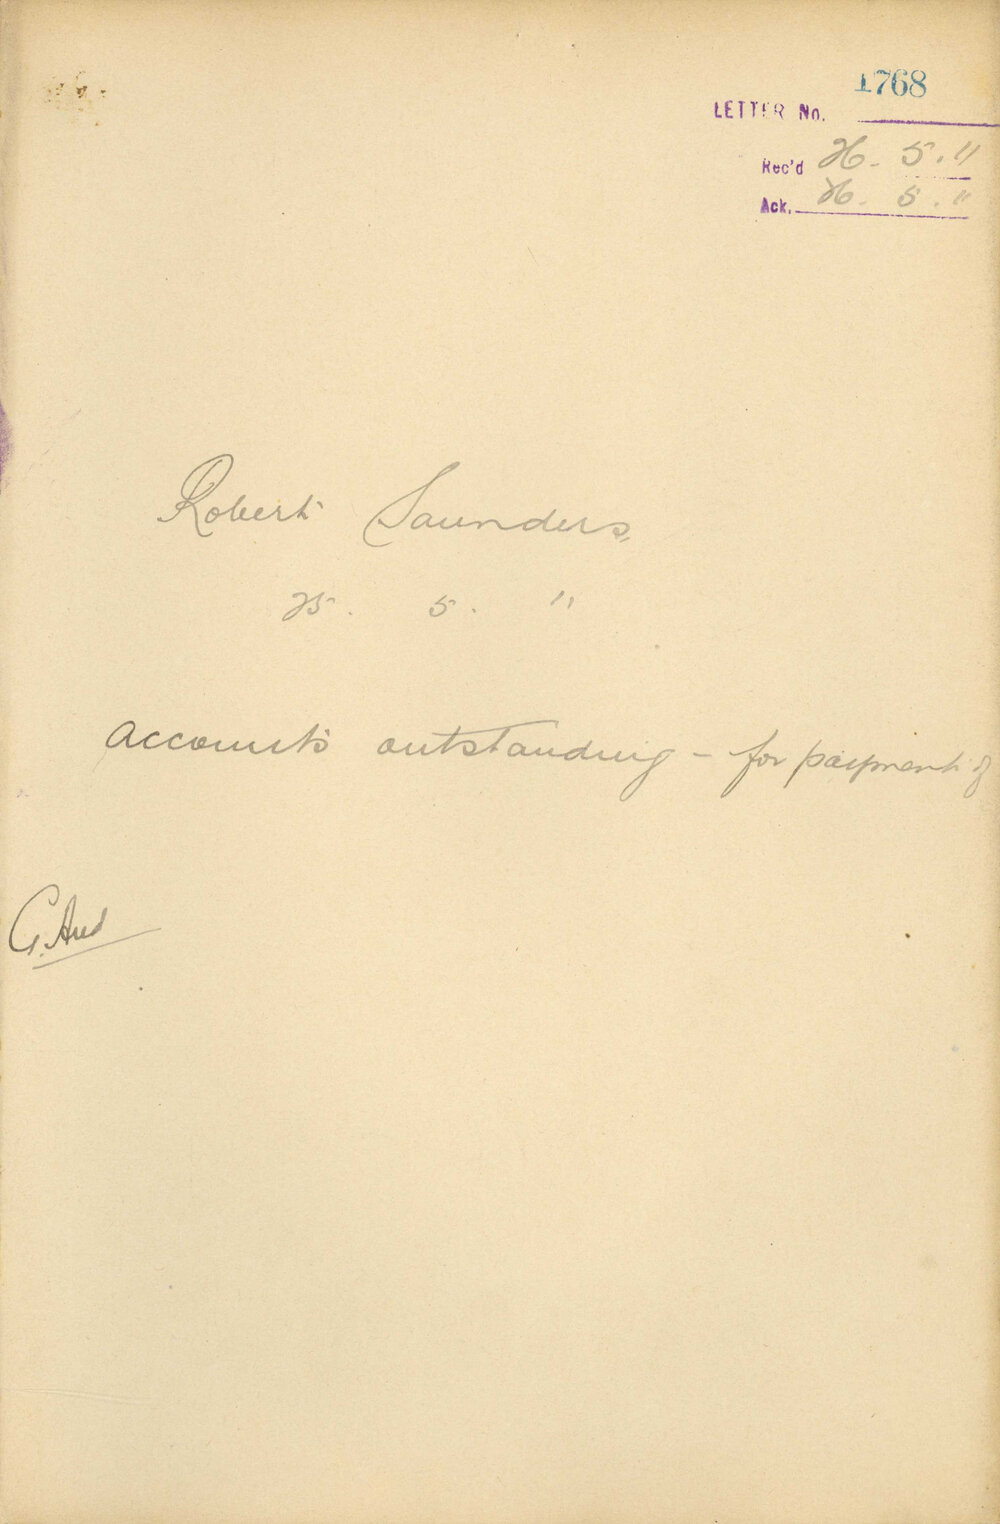 1768
LETTER No.
Rec'd 26. 5. 11
Ack. 26. 5. 11
Robert Saunders,
25. 5. 11
Accounts outstanding - for payment of